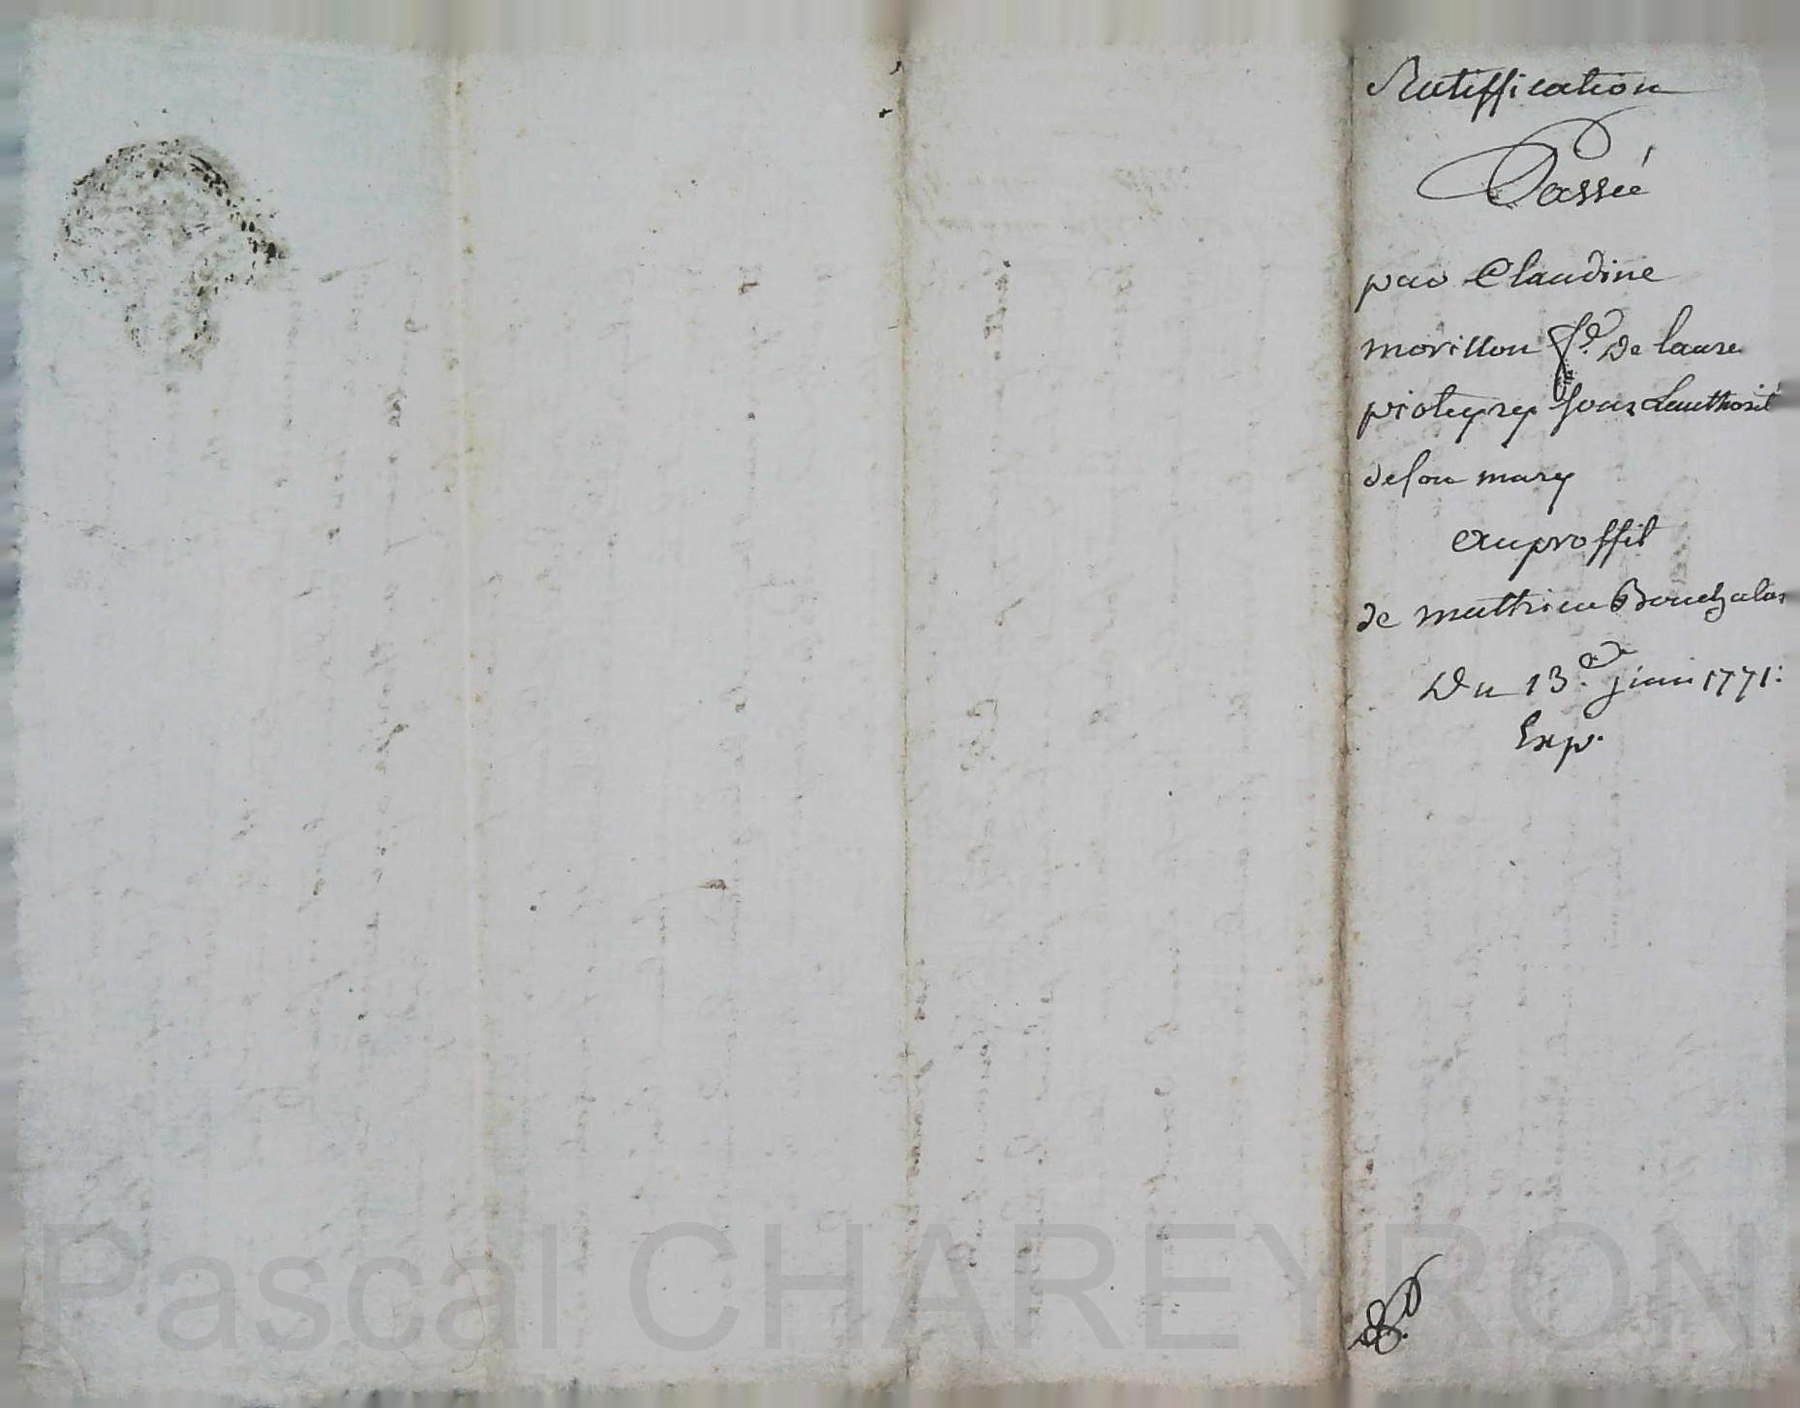 Ratiffication
Passée
par Claudine
morillon f.e De laure
pioteyry sous Lauthorité
de son mary
Au proffit
de mathieu Bouchalas
Du 13.e juin 1771:
Exp.
Pascal CHAREYRON